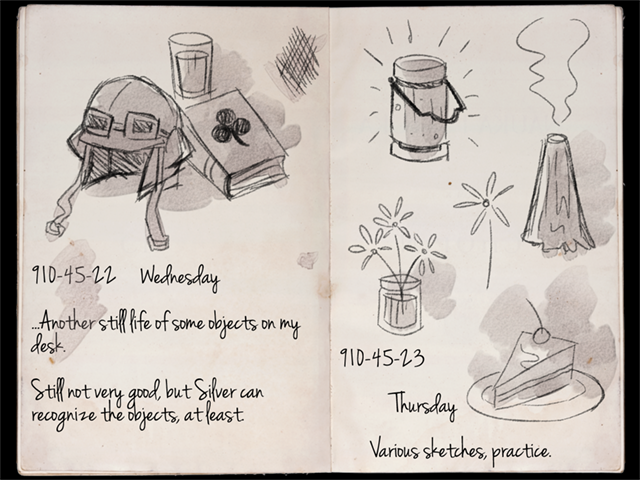 910-45-22 Wednesday
...Another still life of some objects on my
desk.
Still not very good, but Silver can
recognize the objects, at least.
910-45-23
Thursday
Various sketches, practice.